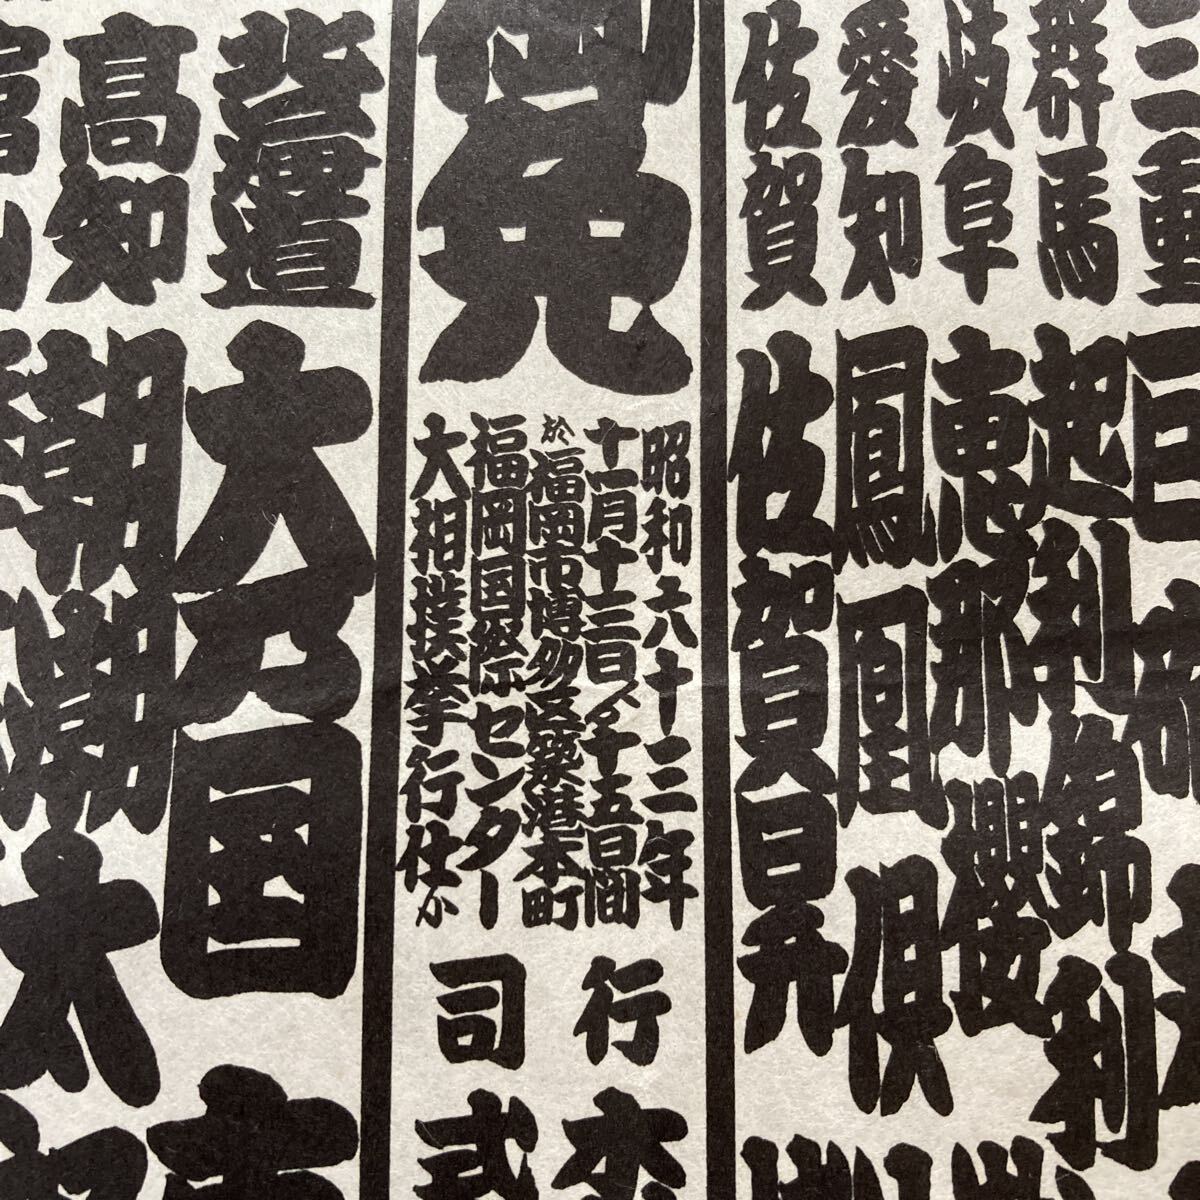 三重
群馬
起利錦 利
岐阜
恵那櫻
愛知
鳳凰 倶
佐賀
佐賀昇
御免
昭和六十三年
十一月十三日ゟ十五日間
於福岡市博多区築港本町
福岡国際センター
大相撲挙行仕候
行司
木
式
北海道
大乃国
高知
朝潮太